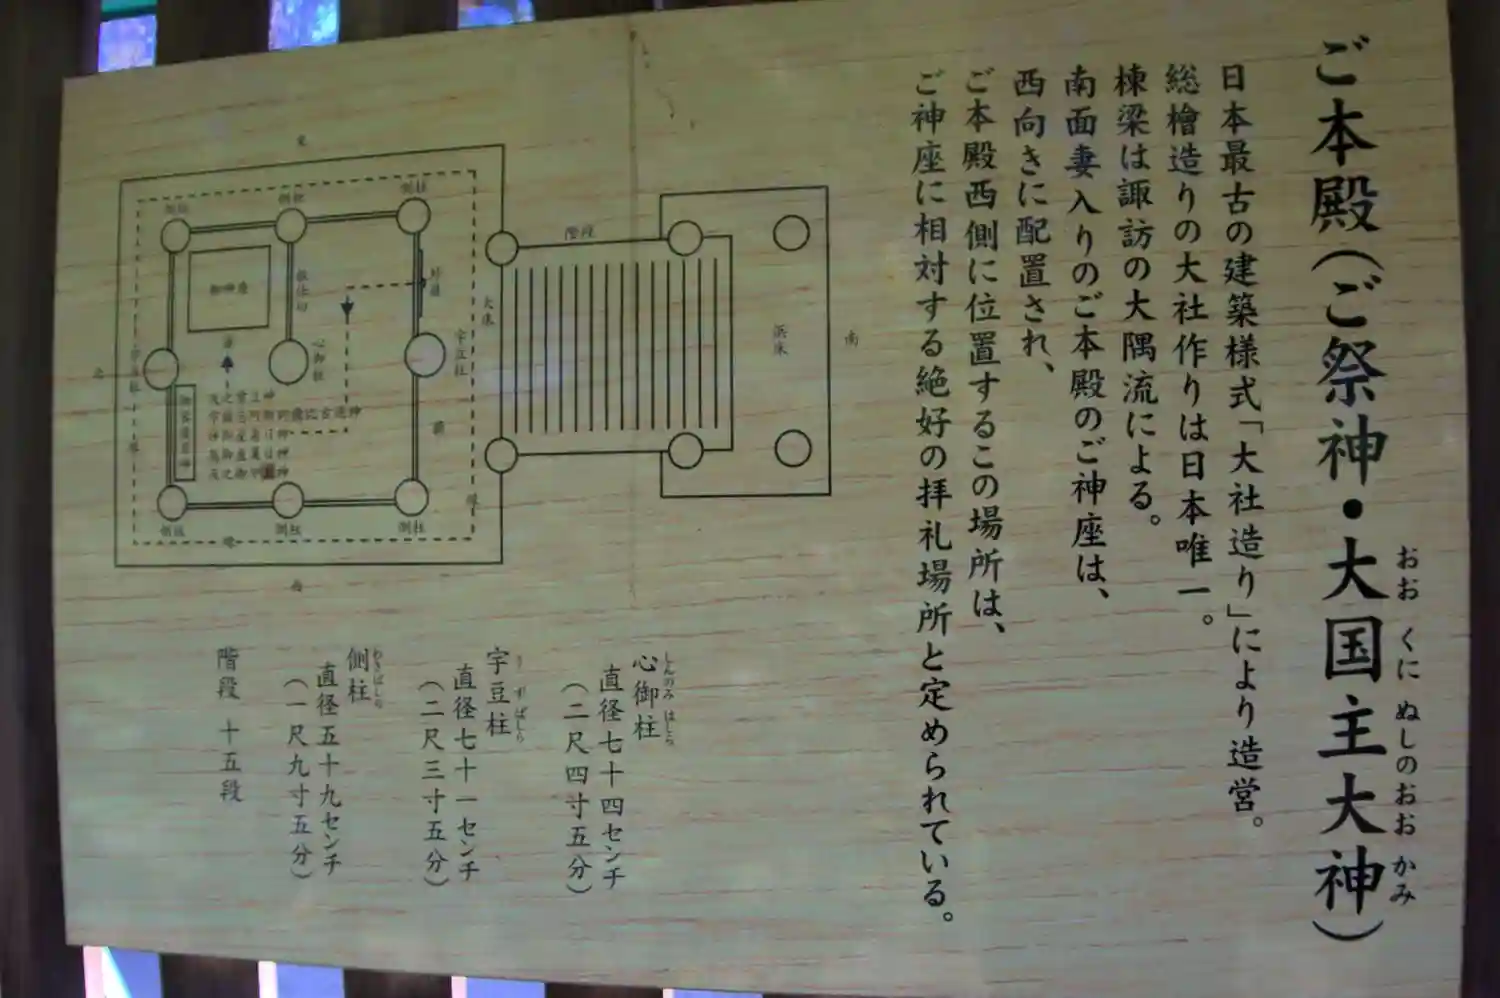 ご本殿(ご祭神・大国主大神)
おお くに ぬしのおお かみ
日本最古の建築様式「大社造り」により造営。
総檜造りの大社作りは日本唯一。
棟梁は諏訪の大隅流による。
南面妻入りのご本殿のご神座は、
西向きに配置され、
ご本殿西側に位置するこの場所は、
ご神座に相対する絶好の拝礼場所と定められている。
南
浜床
階段
大床
宇豆柱
側柱
側柱
側柱
心御柱
御神座
側柱
側柱
側柱
心御柱
しんのみ はしら
直径七十四センチ
(二尺四寸五分)
宇豆柱
うずばしら
直径七十一センチ
(二尺三寸五分)
側柱
わきばしら
直径五十九センチ
(一尺九寸五分)
階段 十五段